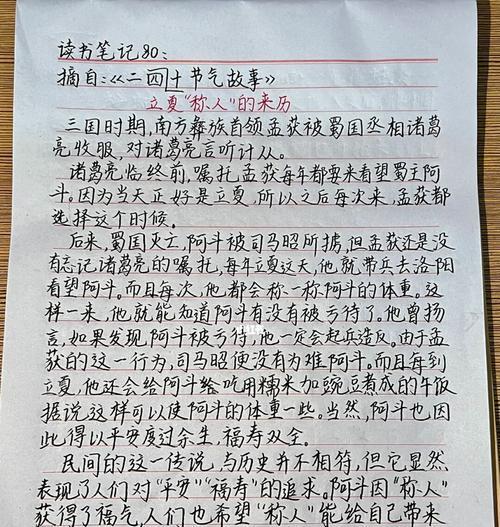 读书笔记80：
摘自：《二四十节气故事》
立夏“称人”的来历
三国时期，南方彝族首领孟获被蜀国丞相诸葛
亮收服，对诸葛亮言听计从。
诸葛亮临终前，嘱托孟获每年都要来看望蜀主阿
斗。因为当天正好是立夏，所以之后每次来，孟获都
选择这个时候。
后来，蜀国灭亡，阿斗被司马昭所掳，但孟获还是没
有忘记诸葛亮的嘱托，每年立夏这天，他就带兵去洛阳
看望阿斗。而且每次，他都会称一称阿斗的体重。这
样一来，他就能知道阿斗有没有被亏待了。他曾扬
言，如果发现阿斗被亏待，他一定会起兵造反。由于孟
获的这一行为，司马昭便没有为难阿斗。而且每到
立夏，他还会给阿斗给吃用糯米加豌豆煮成的午饭
据说，这样可以使阿斗的体重一些。当然，阿斗也因
此，得以平安度过余生，福寿双全。
民间的这一传说，与历史并不相符，但它显然
表现了人们对“平安”“福寿”的追求。阿斗因“称人”
获得了福气，人们也希望“称人”能给自己带来